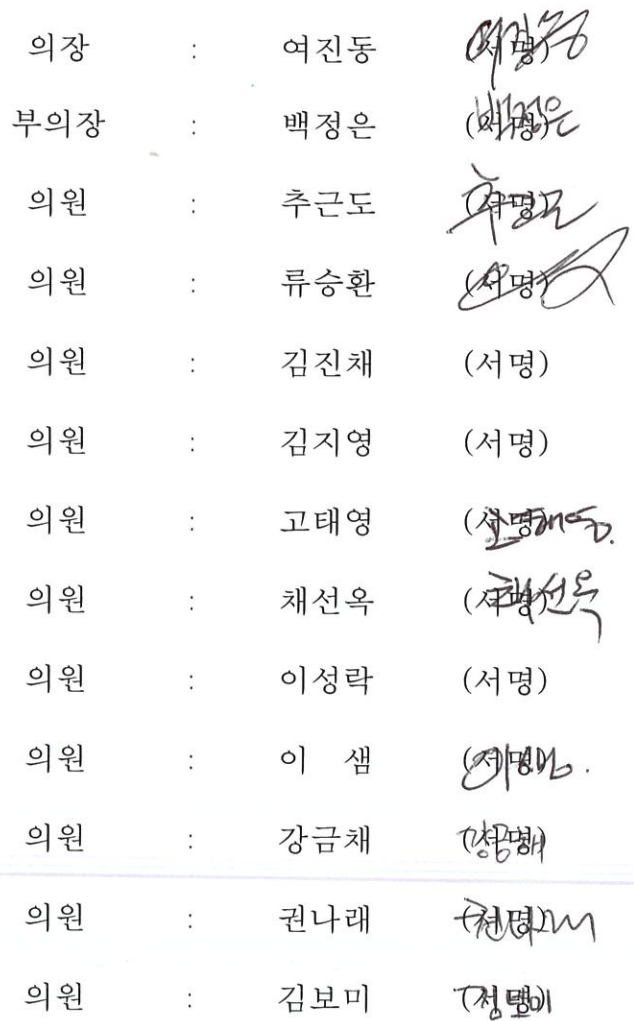 의장 : 여진동 (서명)
부의장 : 백정은 (서명) 백정은
의원 : 추근도 (서명)
의원 : 류승환 (서명)
의원 : 김진채 (서명)
의원 : 김지영 (서명)
의원 : 고태영 (서명)
의원 : 채선옥 (서명) 채선옥
의원 : 이성락 (서명)
의원 : 이 샘 (서명)
의원 : 강금채 (서명)
의원 : 권나래 (서명)
의원 : 김보미 (서명)